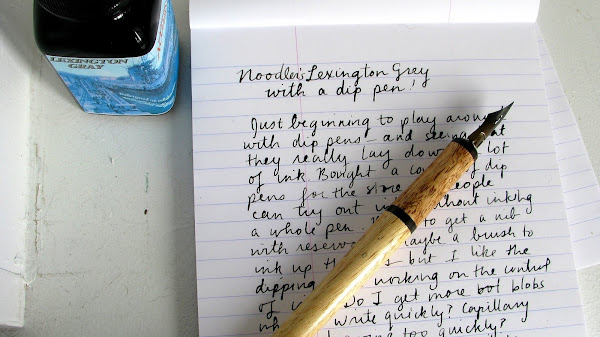 LEXINGTON
GRAY
Noodler's Lexington Grey
with a dip pen!
Just beginning to play around
with dip pens - and seeing that
they really lay down a lot
of ink. Bought a co dip
pens for the store people
can try out without inking
a whole pen. to get a nib
with reserv maybe a brush to
ink up th but I like the
dipping working on the control
of Do I get more bot blobs
wh write quickly? Capillary
too quickly?